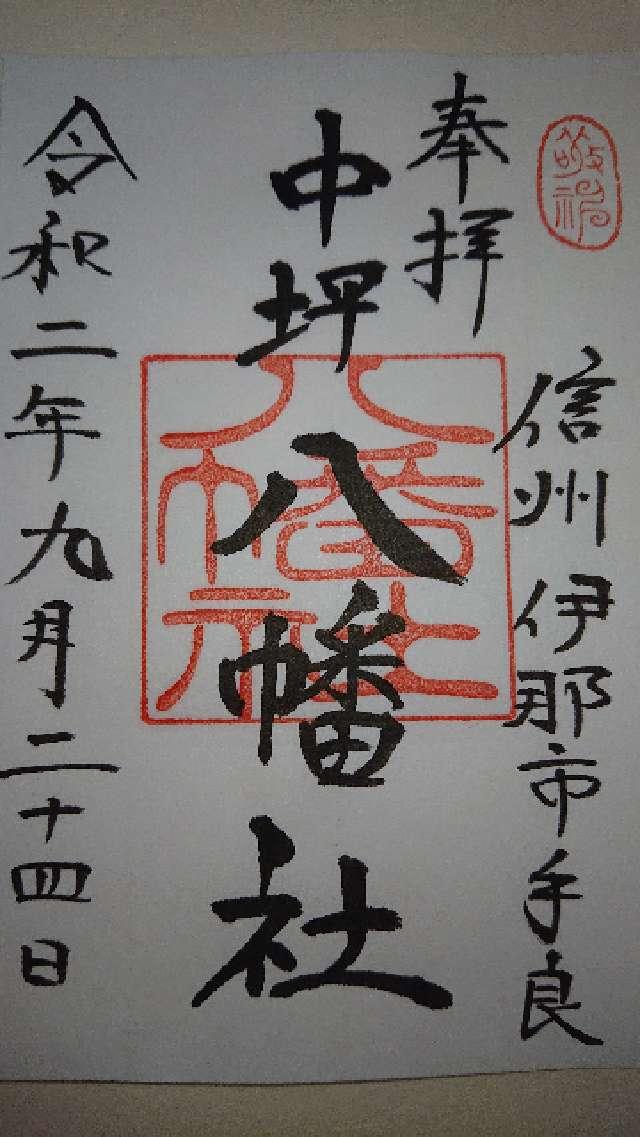 敬神
奉拝
信州伊那市手良
中坪八幡社
八幡社
令和二年九月二十四日